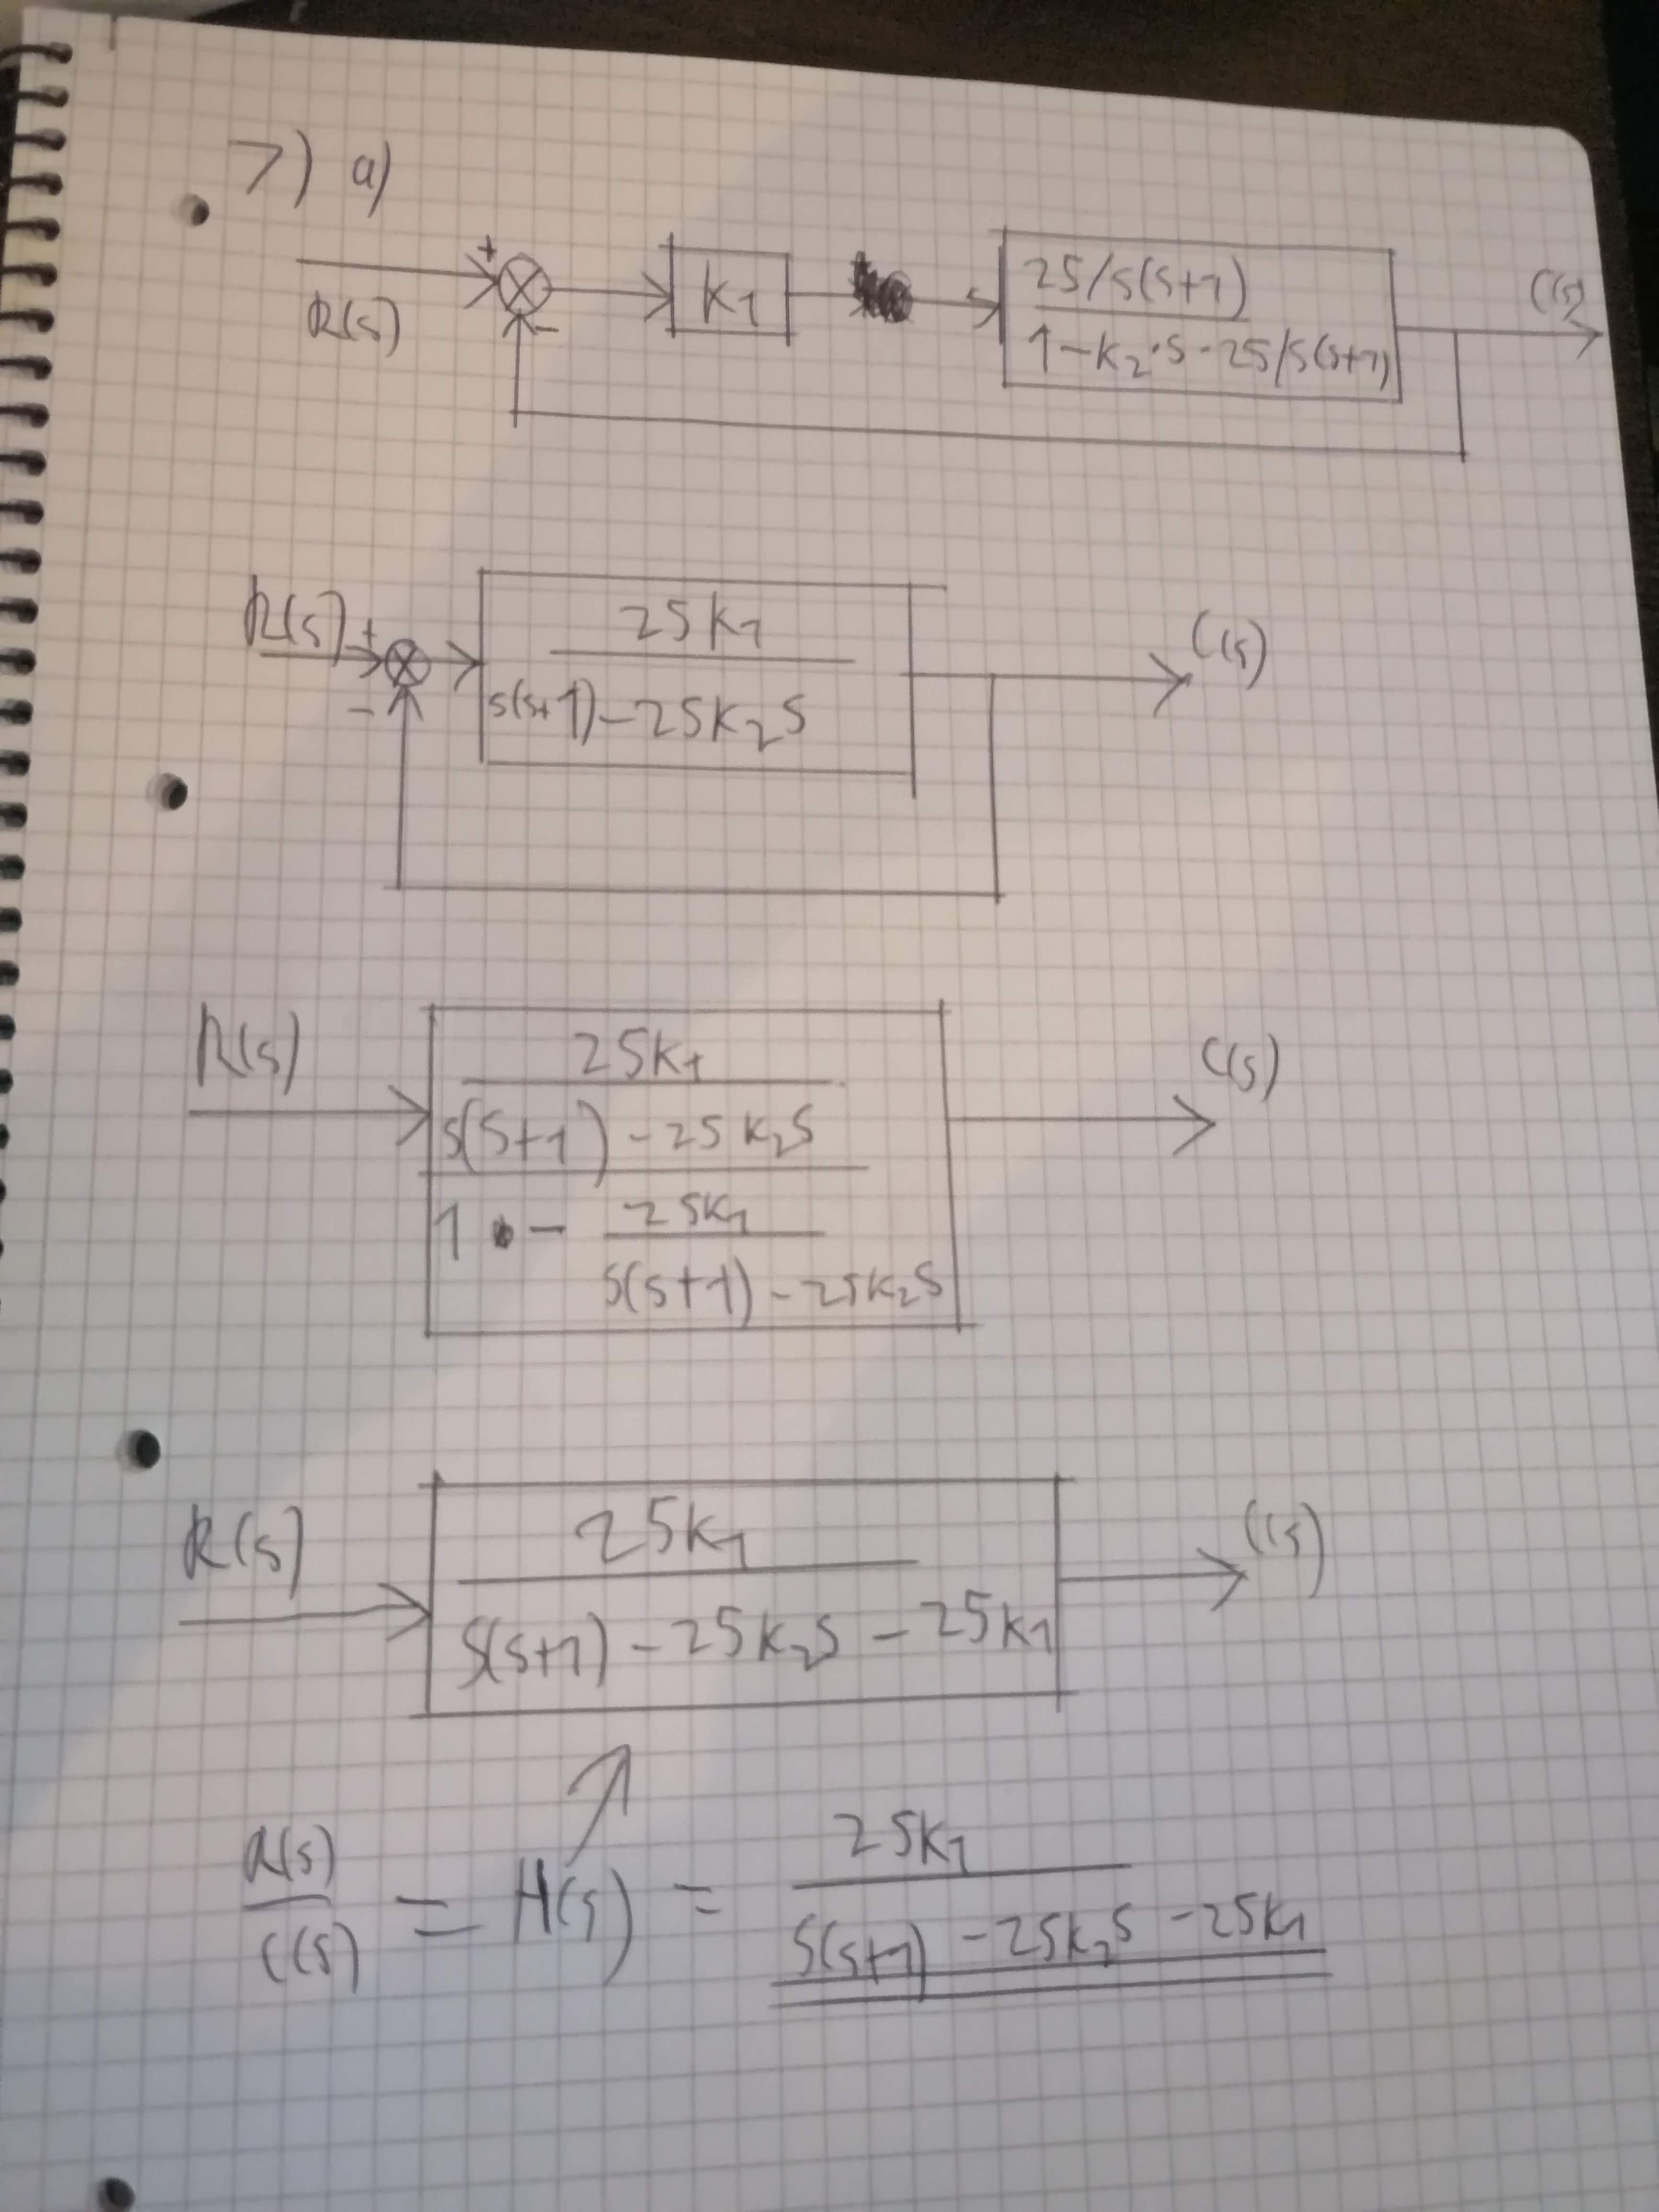 7) a)
R(s) + - K1 25/s(s+1) C(s)
1-K2·s·25/s(s+1)
R(s) + - 25K1 C(s)
s(s+1)-25K2s
R(s) 25K1 C(s)
s(s+1) - 25K2s
1 - 25K1
s(s+1) - 25K2s
R(s) 25K1 C(s)
s(s+1) - 25K2s - 25K1
R(s) = H(s) = 25K1
C(s) s(s+1) - 25K2s - 25K1